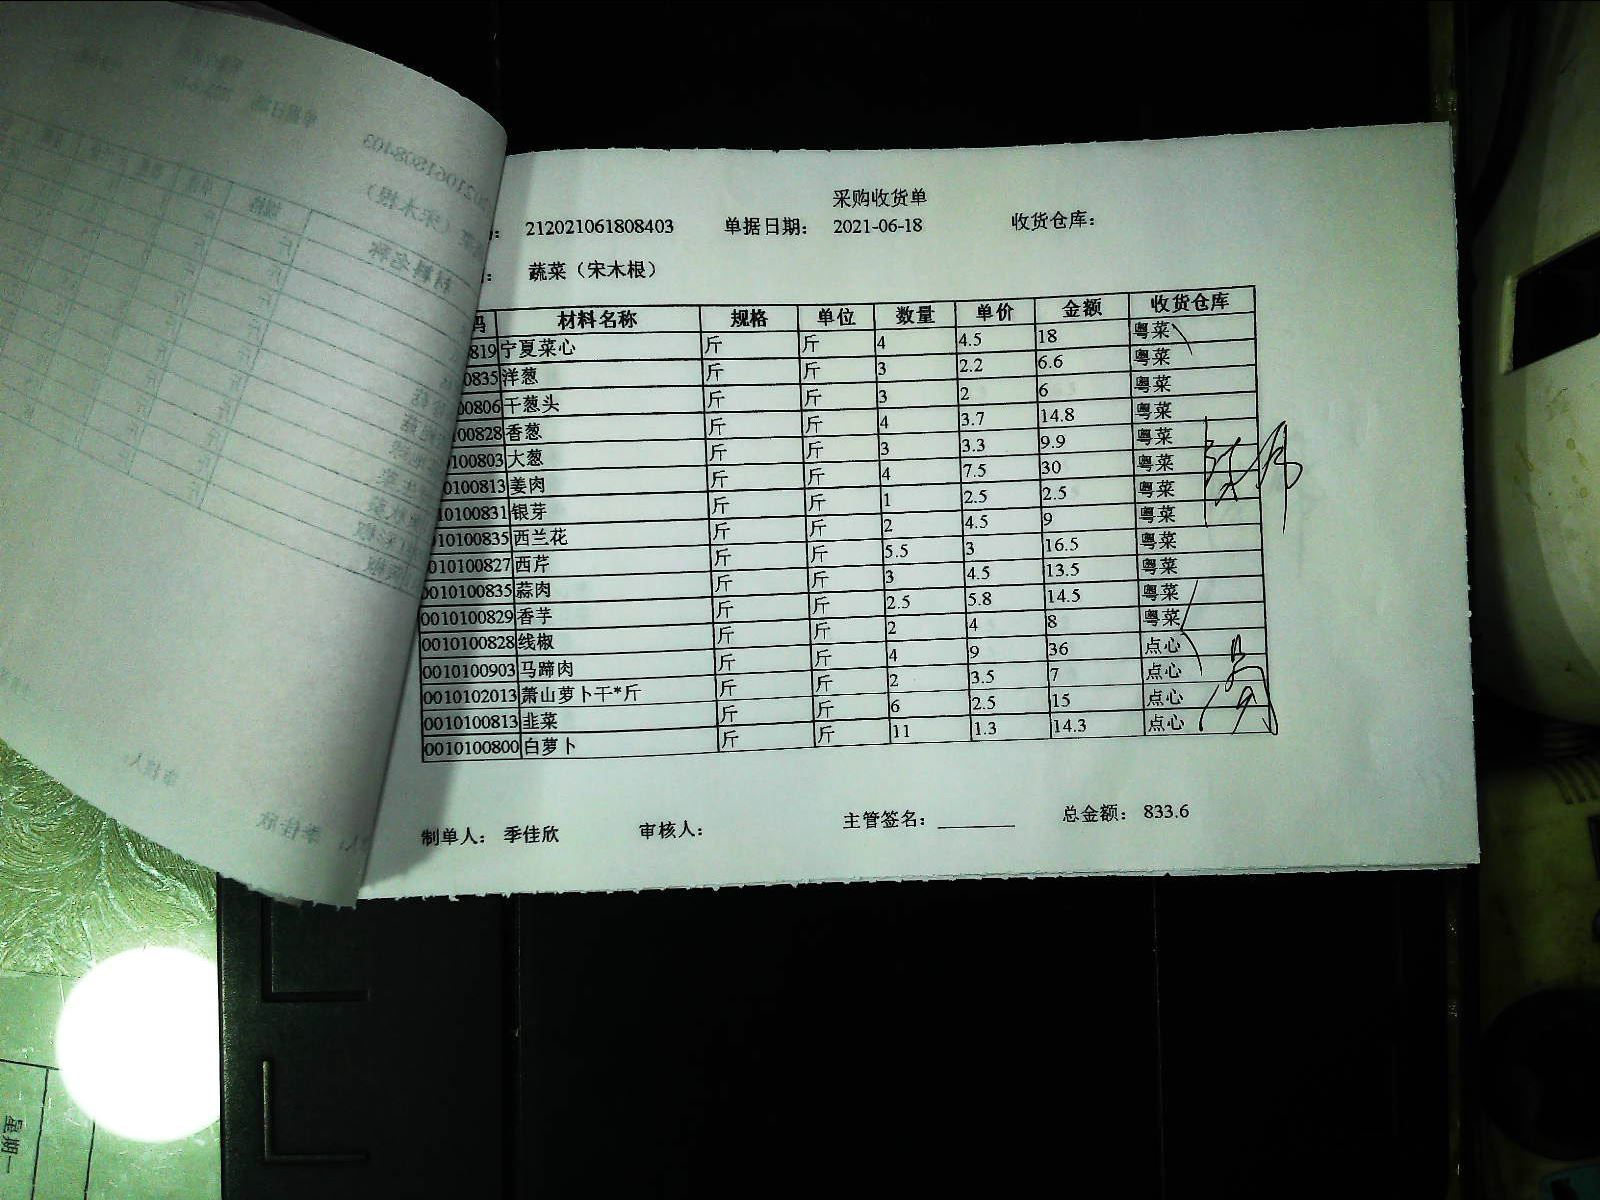 采购收货单
: 212021061808403 单据日期： 2021-06-18 收货仓库：
: 蔬菜（宋木根）
码 材料名称 规格 单位 数量 单价 金额 收货仓库
819 宁夏菜心 斤 斤 4 4.5 18 粤菜
0835 洋葱 斤 斤 3 2.2 6.6 粤菜
00806 干葱头 斤 斤 3 2 6 粤菜
100828 香葱 斤 斤 4 3.7 14.8 粤菜
0100803 大葱 斤 斤 3 3.3 9.9 粤菜
0100813 姜肉 斤 斤 4 7.5 30 粤菜
10100831 银芽 斤 斤 1 2.5 2.5 粤菜
010100835 西兰花 斤 斤 2 4.5 9 粤菜
010100827 西芹 斤 斤 5.5 3 16.5 粤菜
0010100835 蒜肉 斤 斤 3 4.5 13.5 粤菜
0010100829 香芋 斤 斤 2.5 5.8 14.5 粤菜
0010100828 线椒 斤 斤 2 4 8 粤菜
0010100903 马蹄肉 斤 斤 4 9 36 点心
0010102013 萧山萝卜干*斤 斤 斤 2 3.5 7 点心
0010100813 韭菜 斤 斤 6 2.5 15 点心
0010100800 白萝卜 斤 斤 11 1.3 14.3 点心
制单人： 季佳欣 审核人： 主管签名： 总金额： 833.6
星期一